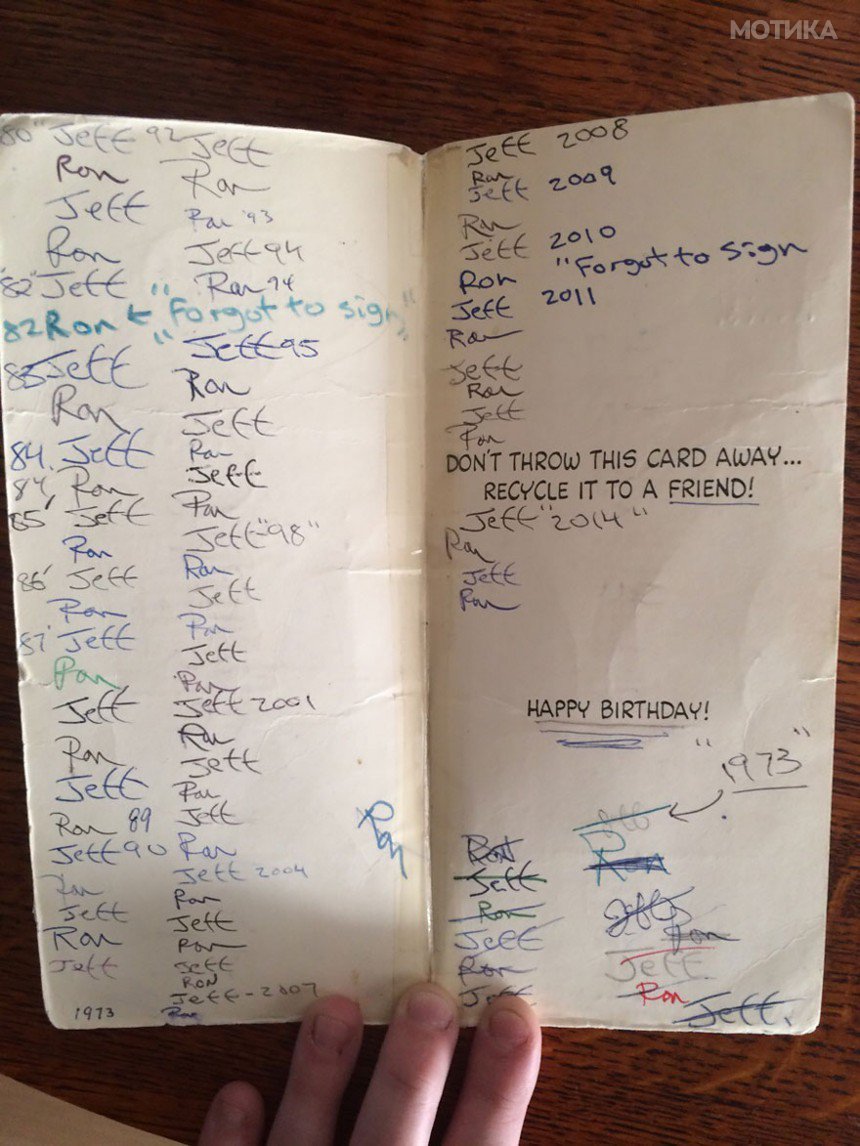 МОТИКА
80" Jeff 92
Ron
Jeff
Ron
"82" Jeff
82 Ron ← "Forgot to sign"
83 Jeff
Ron
84. Jeff
84' Ron
85' Jeff
Ron
86' Jeff
Ron
87' Jeff
Ron
Jeff
Ron
Jeff
Ron 89
Jeff 90
Ron
Jeff
Ron
Jeff
1973
Jeff
Ron
Ron '93
Jeff 94
Ron 94
Jeff 95
Ron
Jeff
Ron
Jeff
Ron
Jeff "98"
Ron
Jeff
Ron
Jeff
Ron
Jeff 2001
Ron
Jeff
Ron
Jeff
Ron
Jeff 2004
Ron
Jeff
Ron
Jeff
RON
Jeff - 2007
Ron
Ron
Jeff 2008
Ron
Jeff 2009
Ron
Jeff 2010
Ron "Forgot to sign
Jeff 2011
Ron
Jeff
Ron
Jeff
Ron
DON'T THROW THIS CARD AWAY...
RECYCLE IT TO A FRIEND!
Jeff "2014"
Ron
Jeff
Ron
HAPPY BIRTHDAY!
"1973"
Ron
Jeff
Ron
Jeff
Ron
Jeff
Jeff
Ron
Jeff
Ron
Jeff
Ron
Jeff.